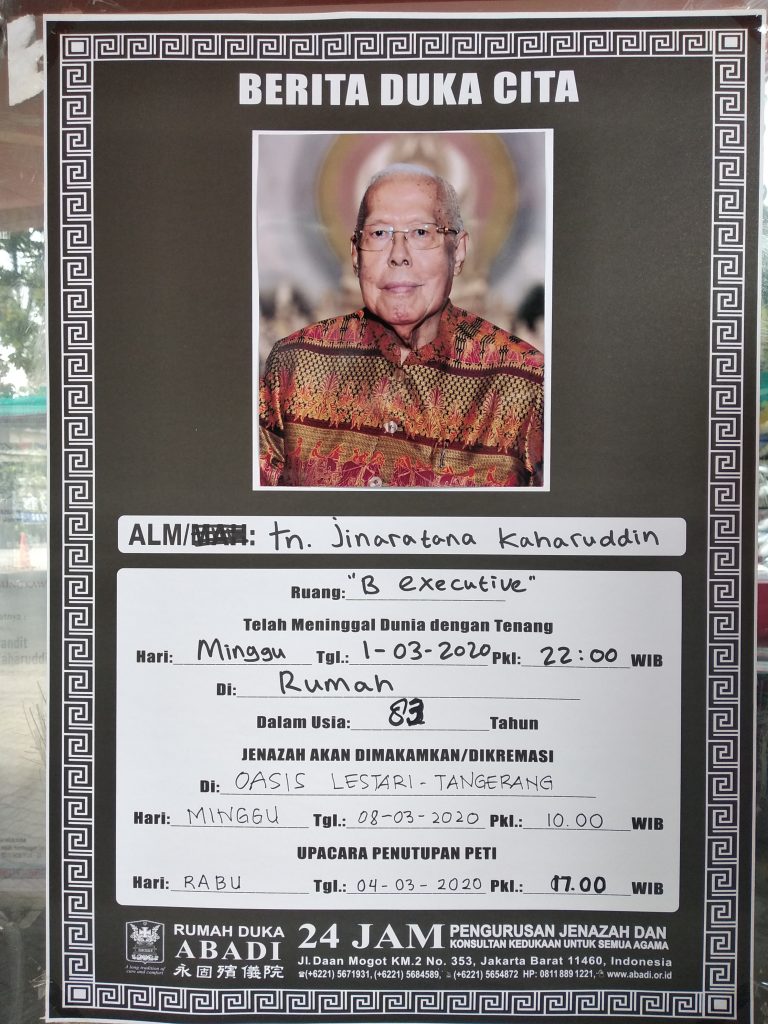 BERITA DUKA CITA
ALM/MAH: tn. Jinaratana Kaharuddin
Ruang: "B executive"
Telah Meninggal Dunia dengan Tenang
Hari: Minggu Tgl.: 1-03-2020 Pkl: 22:00 WIB
Di: Rumah
Dalam Usia: 83 Tahun
JENAZAH AKAN DIMAKAMKAN/DIKREMASI
Di: OASIS LESTARI - TANGERANG
Hari: MINGGU Tgl.: 08-03-2020 Pkl.: 10.00 WIB
UPACARA PENUTUPAN PETI
Hari: RABU Tgl.: 04-03-2020 Pkl.: 17.00 WIB
RUMAH DUKA
ABADI
永固殯儀院
A long tradition of
care and comfort
24 JAM PENGURUSAN JENAZAH DAN
KONSULTAN KEDUKAAN UNTUK SEMUA AGAMA
Jl. Daan Mogot KM.2 No. 353, Jakarta Barat 11460, Indonesia
(+6221) 5671931, (+6221) 5684589, (+6221) 5654872 HP: 0811 889 1221, www.abadi.or.id